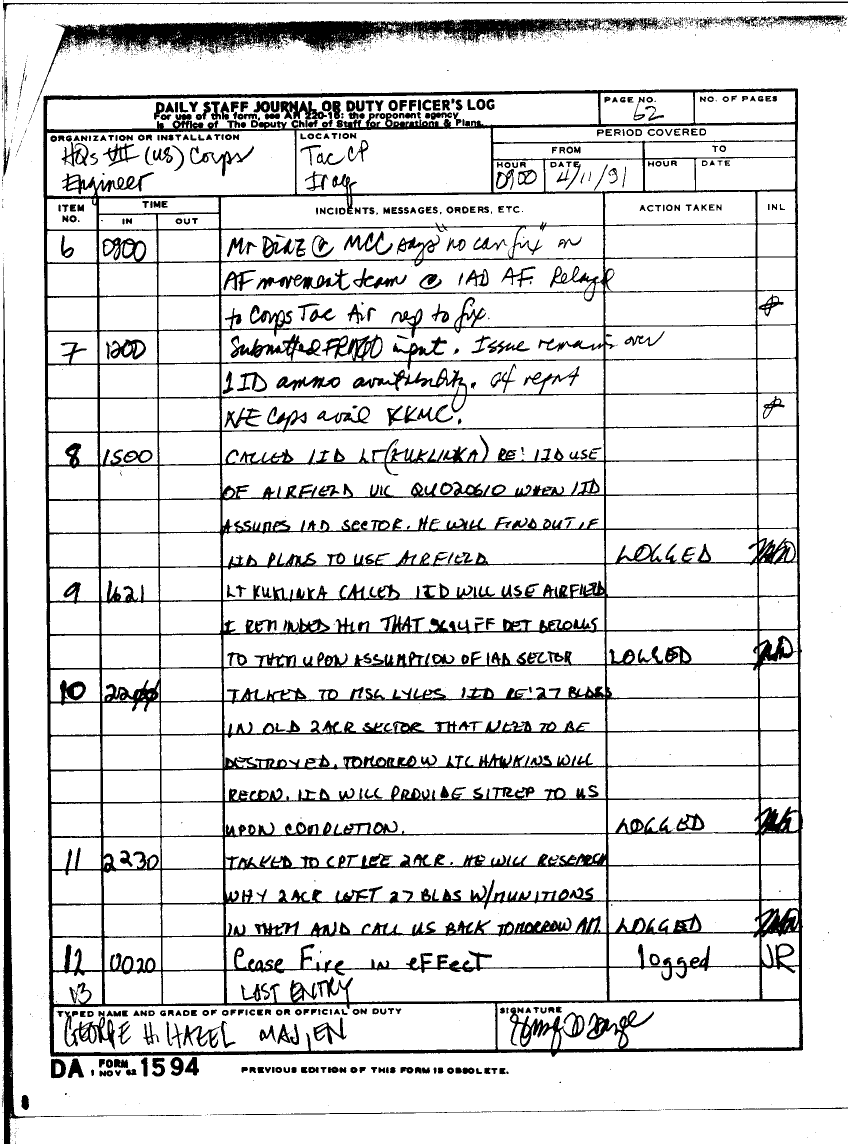 DAILY STAFF JOURNAL OR DUTY OFFICER'S LOG
For use of this form, see AR 220-15; the proponent agency
is Office of The Deputy Chief of Staff for Operations & Plans.
PAGE NO.
62
NO. OF PAGES
ORGANIZATION OR INSTALLATION
HQs VII (US) Corps
Engineer
LOCATION
Tac CP
Iraq
PERIOD COVERED
FROM
TO
HOUR
0900
DATE
4/11/91
HOUR
DATE
ITEM NO.
TIME
IN
OUT
INCIDENTS, MESSAGES, ORDERS, ETC.
ACTION TAKEN
INL
6 0900 Mr Diaz @ MCC says "no can fix" on
AF movement team @ 1AD AF. Relayed
to Corps Tac Air rep to fix.
7 1200 Submitted input. Issue remains over
1ID ammo availability. G4 report
N/E Caps avail KKMC.
8 1500 CALLED 1ID LT (KUKLINKA) RE: 1ID USE
OF AIRFIELD VIC QU020610 WHEN 1ID
ASSUMES 1AD SECTOR. HE WILL FIND OUT IF
1ID PLANS TO USE AIRFIELD LOGGED
9 1621 LT KUKLINKA CALLED 1ID WILL USE AIRFIELD
I REMINDED HIM THAT DET BELONGS
TO THEM UPON ASSUMPTION OF 1AD SECTOR LOGGED
10 2200 TALKED TO MSG LYLES 1ID RE: 27 BLDGS
IN OLD 2ACR SECTOR THAT NEED TO BE
DESTROYED. TOMORROW LTC HAWKINS WILL
RECON. 1ID WILL PROVIDE SITREP TO US
UPON COMPLETION. LOGGED
11 2230 TALKED TO CPT LEE 2ACR. HE WILL RESEARCH
WHY 2ACR LEFT 27 BLDS W/MUNITIONS
IN THEM AND CALL US BACK TOMORROW AM. LOGGED
12 0020 Cease Fire IN eFFecT logged JR
13 LAST ENTRY
TYPED NAME AND GRADE OF OFFICER OR OFFICIAL ON DUTY
GEORGE H. HAZEL MAJ, EN
SIGNATURE
DA FORM 1 NOV 62 1594
PREVIOUS EDITION OF THIS FORM IS OBSOLETE.